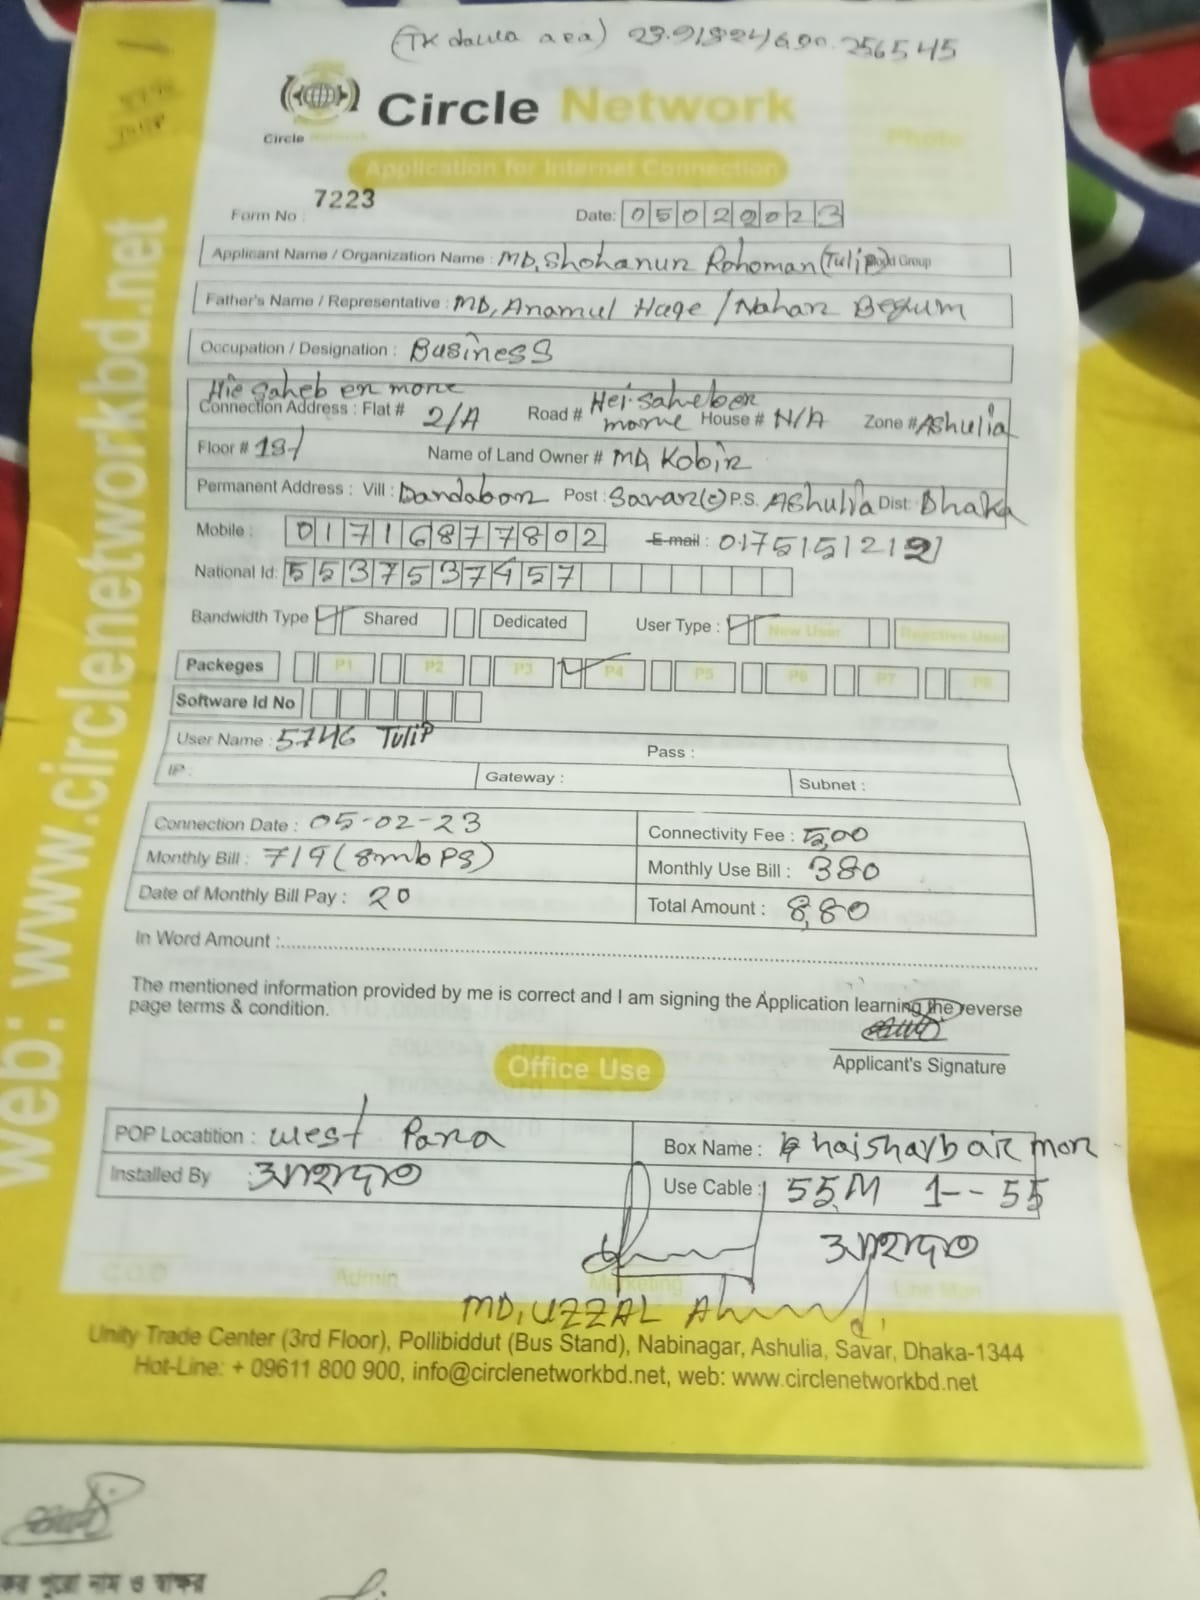 (TK dawa aea) 23.91824690.256545
Circle Network
Circle
Photo
Application for Internet Connection
Form No : 7223
Date: 05022023
Applicant Name / Organization Name : MD, Shohanur Rohoman (Tulip) Blood Group
Father's Name / Representative : MD, Anamul Haqe / Nahar Begum
Occupation / Designation : Business
Hie Saheb er more
Connection Address : Flat # 2/A Road # Hei-saheber more House # N/A Zone # Ashulia
Floor # 1st Name of Land Owner # MD, Kobir
Permanent Address : Vill : Dandabor Post : Savar(c) P.S. Ashulia Dist: Dhaka
Mobile : 01716877802 E-mail : 01751512121
National Id: 5537537457
Bandwidth Type Shared Dedicated User Type : New User Reactive User
Packeges P1 P2 P3 P4 P5 P6 P7 P8
Software Id No
User Name : 5746 Tulip Pass :
IP : Gateway : Subnet :
Connection Date : 05-02-23 Connectivity Fee : 500
Monthly Bill : 719 (8mbps) Monthly Use Bill : 380
Date of Monthly Bill Pay : 20 Total Amount : 8,80
In Word Amount :
The mentioned information provided by me is correct and I am signing the Application learning the reverse
page terms & condition.
Applicant's Signature
Office Use
POP Locatition : West Para Box Name : haisharbair mor
Installed By আহাদ Use Cable : 55M 1--55
আহাদ
C.O.O Admin Marketing Line Man
MD, UZZAL Ahmed
Unity Trade Center (3rd Floor), Pollibiddut (Bus Stand), Nabinagar, Ashulia, Savar, Dhaka-1344
Hot-Line: + 09611 800 900, info@circlenetworkbd.net, web: www.circlenetworkbd.net
web: www.circlenetworkbd.net
পুরো নাম ও স্বাক্ষর